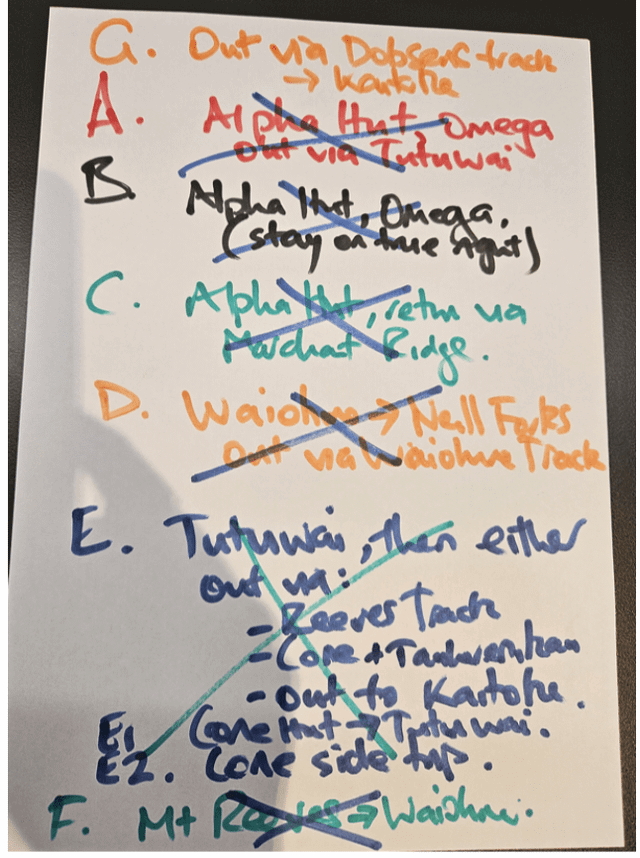 G. Out via Dobsens track
→ Kaitoke
A. Alpha Hut, Omega
out via Tutuwai
B. Alpha Hut, Omega.
(stay on true right)
C. Alpha Hut, retrn via
Marchant Ridge.
D. Waiohine → Neill Forks
Out via Waiohine Track
E. Tutuwai, then either
out via:
- Reeves Track
- Cone +
- out to Kaitoke.
E1 Cone Hut → Tutuwai.
E2. Cone side trip.
F. Mt Reeves → Waiohine.